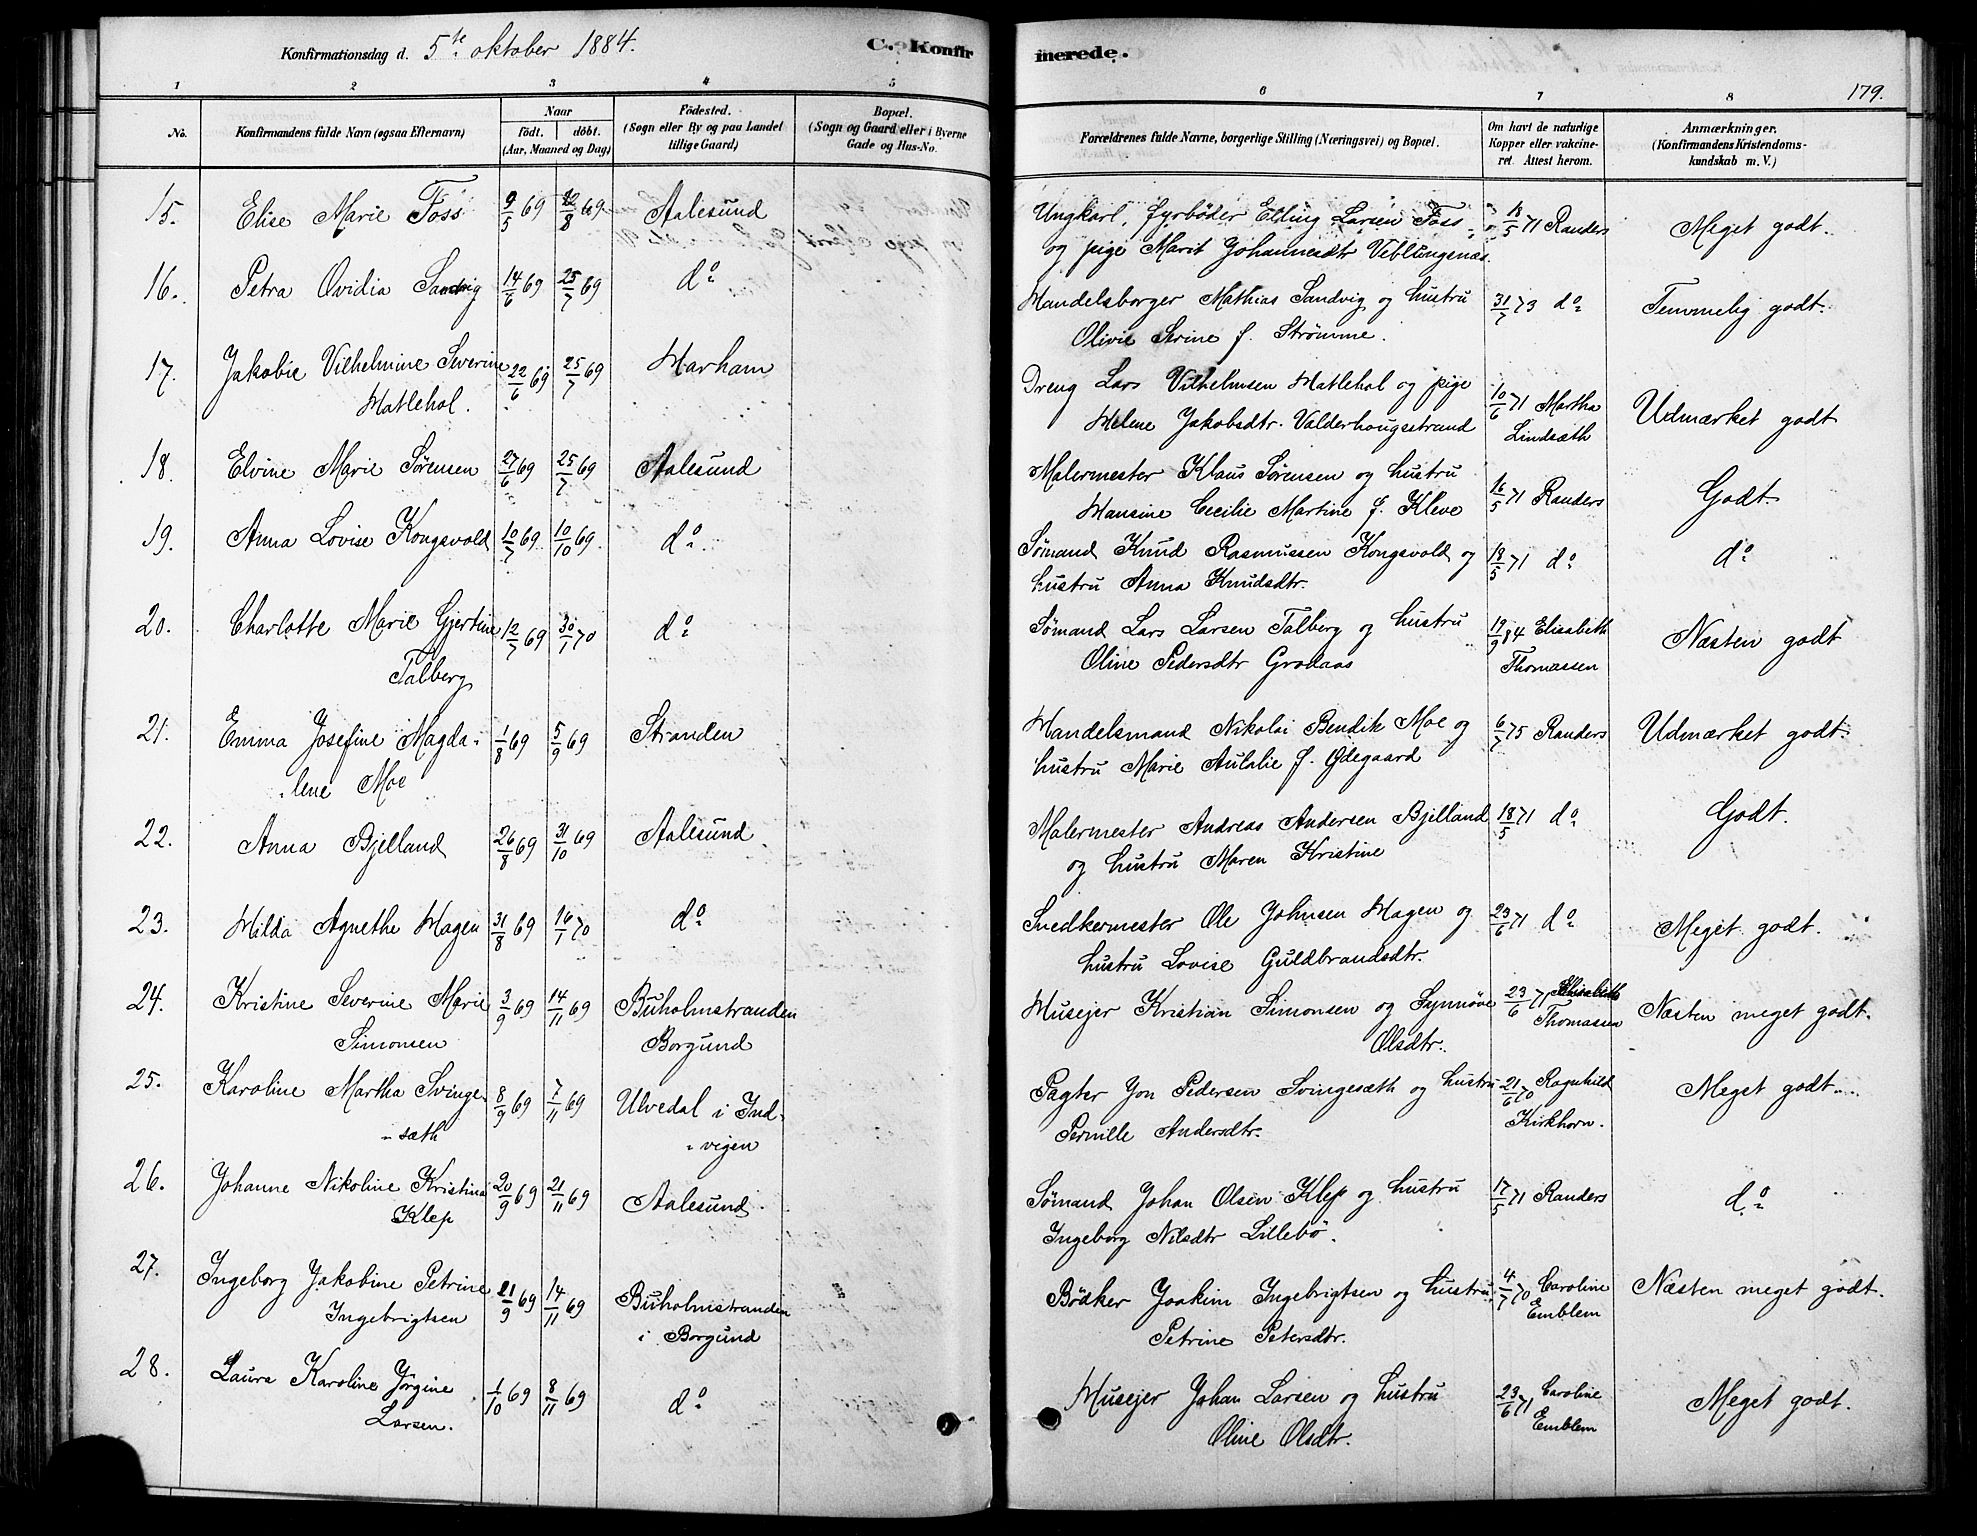 Konfirmationsdag d. 5te oktober 1884.
C. Konfirmerede.
179.
1 2 3 4 5 6 7 8
No.
Konfirmandens fulde Navn (ogsaa Efternavn)
Naar
født. døbt.
(Aar, Maaned og Dag)
Fødested.
(Sogn eller By og paa Landet
tillige Gaard)
Bopæl.
(Sogn og Gaard eller i Byerne
Gade og Hus-No.
Forældrenes fulde Navne, borgerlige Stilling (Næringsvei) og Bopæl.
Om havt de naturlige
Kopper eller vakcine-
ret. Attest herom.
Anmærkninger.
(Konfirmandens Kristendoms-
kundskab m. V.)
15. Elise Marie Foss 9/5 69 /8 69 Aalesund Ungkarl, fyrbøder Elling Larsen Foss 18/5 71 Randers Meget godt.
og pige Marit Johannesdtr Veblungsnæs
16. Petra Ovidia Sandvig 14/6 69 25/7 69 do Handelsborger Mathias Sandvig og hustru 31/7 73 do Temmelig godt.
Olivie Serine f. Strømme.
17. Jakobie Vilhelmine Severine 22/6 69 25/7 69 Harham Dreng Lars Vilhelmsen Hatlehol og pige 10/6 71 Martha Udmærket godt
Hatlehol. Helene Jakobsdtr. Valderhougsstrand Lindsæth
18. Elvine Marie Sørensen 27/6 69 25/7 69 Aalesund Malermester Klaus Sørensen og hustru 16/5 71 Randers Godt
Hansine Cecilie Martine f. Kleve
19. Anna Lovise Kongsvold 10/7 69 10/10 69. do Sømand Knud Rasmussen Kongsvold og 18/5 71 do do
hustru Anna Knudsdtr.
20. Charlotte Marie Gjertine 12/7 69 30/1 70 do Sømand Lars Larsen Talberg og hustru 19/9 84 Elisabeth Næsten godt
Talberg Oline Pedersdtr Grodaas Thomassen
21. Emma Josefine Magda- 1/8 69 5/9 69 Stranden Handelsmand Nikolai Bendik Moe og 6/7 75 Randers Udmærket godt.
lene Moe hustru Marie Aulalie f. Ødegaard
22. Anna Bjelland 26/8 69 31/10 69 Aalesund Malermester Andreas Andersen Bjelland 18/5 71 do Godt.
og hustru Maren Kristine
23. Hilda Agnethe Hagen 31/8 69 16/1 70 do Snedkermester Ole Johnsen Hagen og 23/6 71 do Meget godt.
hustru Lovise Guldbrandsdtr.
24. Kristine Severine Marie 3/9 69 14/11 69 Buholmstranden Husejer Kristian Simonsen og Synnøve 23/6 71 Elisabeth Næsten meget godt.
Simonsen Borgund Olsdtr. Thomassen
25. Karoline Martha Svinge- 8/9 69 7/11 69 Ulvedal i Ind- Pagter Jon Pedersen Svingesæth og hustru 21/6 70 Ragnhild Meget godt.
sæth vigen Pernille Andersdtr. Kirkhorn.
26. Johanne Nikoline Kristina 20/9 69 21/11 69 Aalesund. Sømand Johan Olsen Klep og hustru 17/5 71 Randers do
Klep Ingeborg Nilsdtr Lillebø.
27. Ingeborg Jakobine Petrine 21/9 69 14/11 69 Buholmstranden Bødker Joakim Ingebrigtsen og hustru 4/7 70 Caroline Næsten meget godt.
Ingebrigtsen i Borgund Petrine Petersdtr. Emblem
28. Laura Karoline Jørgine 1/10 69 8/11 69 do Husejer Johan Larsen og hustru 23/6 71 Caroline Meget godt.
Larsen. Oline Olsdtr. Emblem